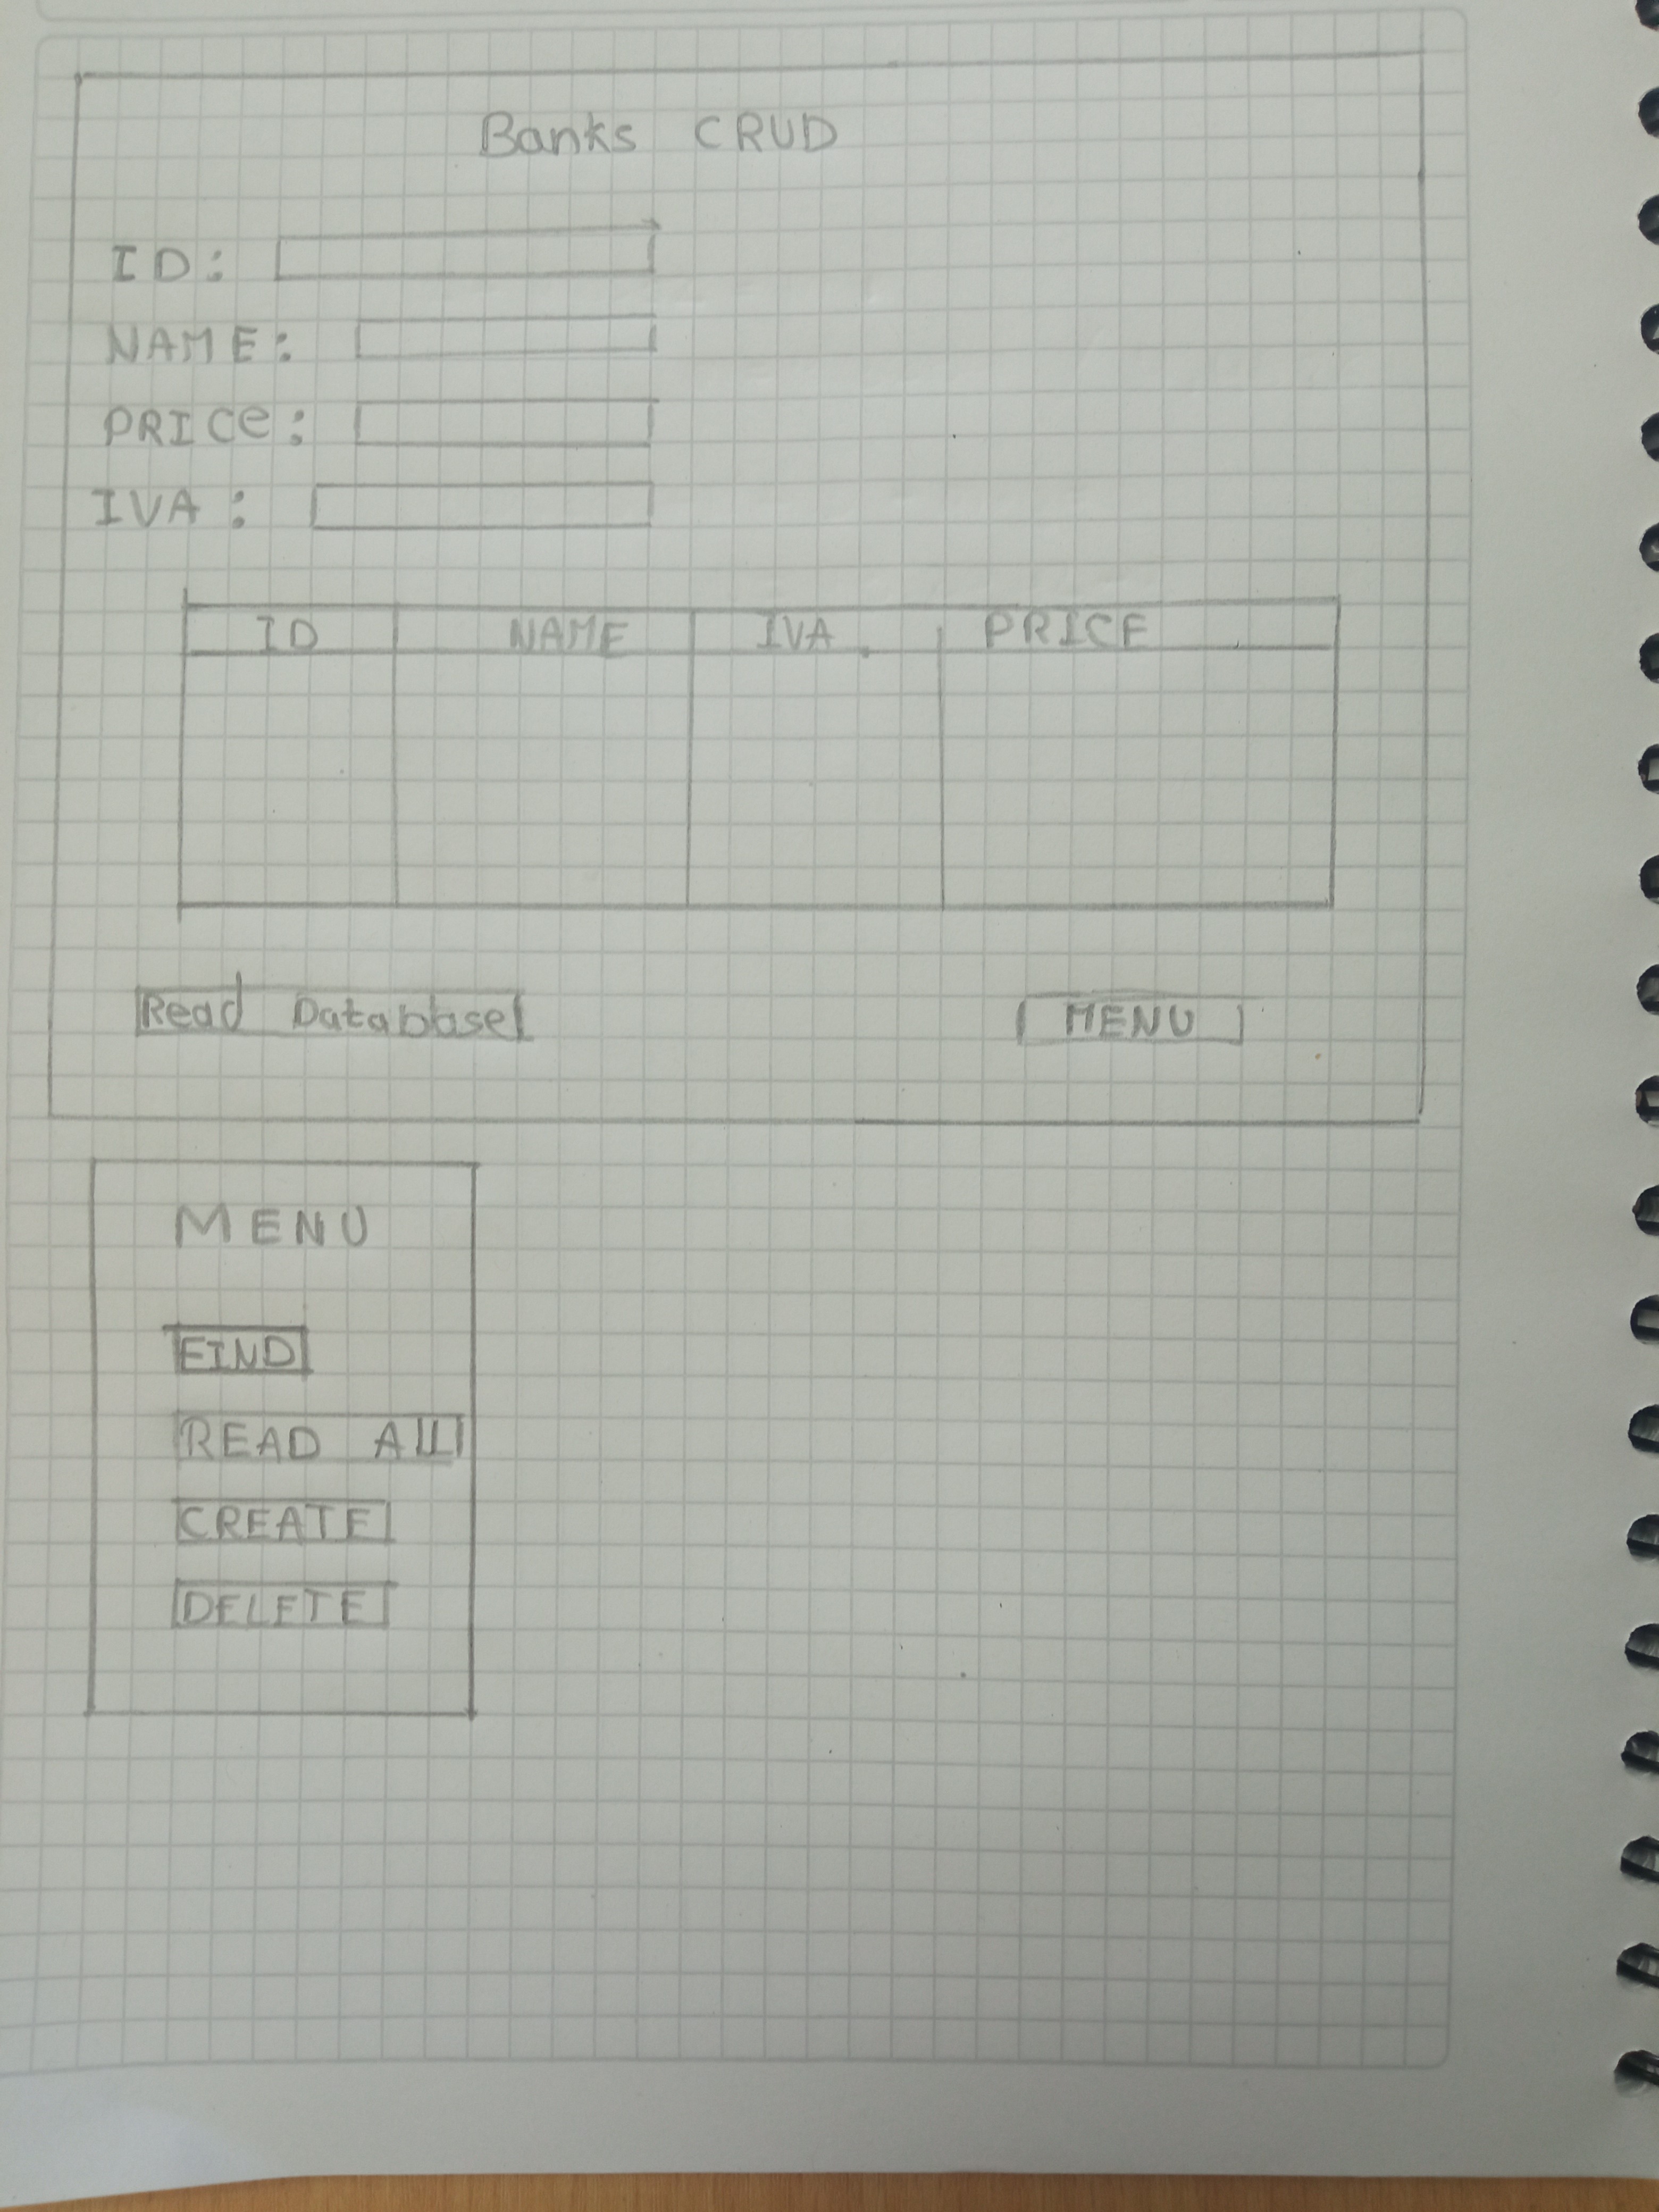 Banks CRUD
ID:
NAME:
PRICe:
IVA:
ID NAME IVA PRICE
Read Database MENU
MENU
FIND
READ All
CREATE
DELETE